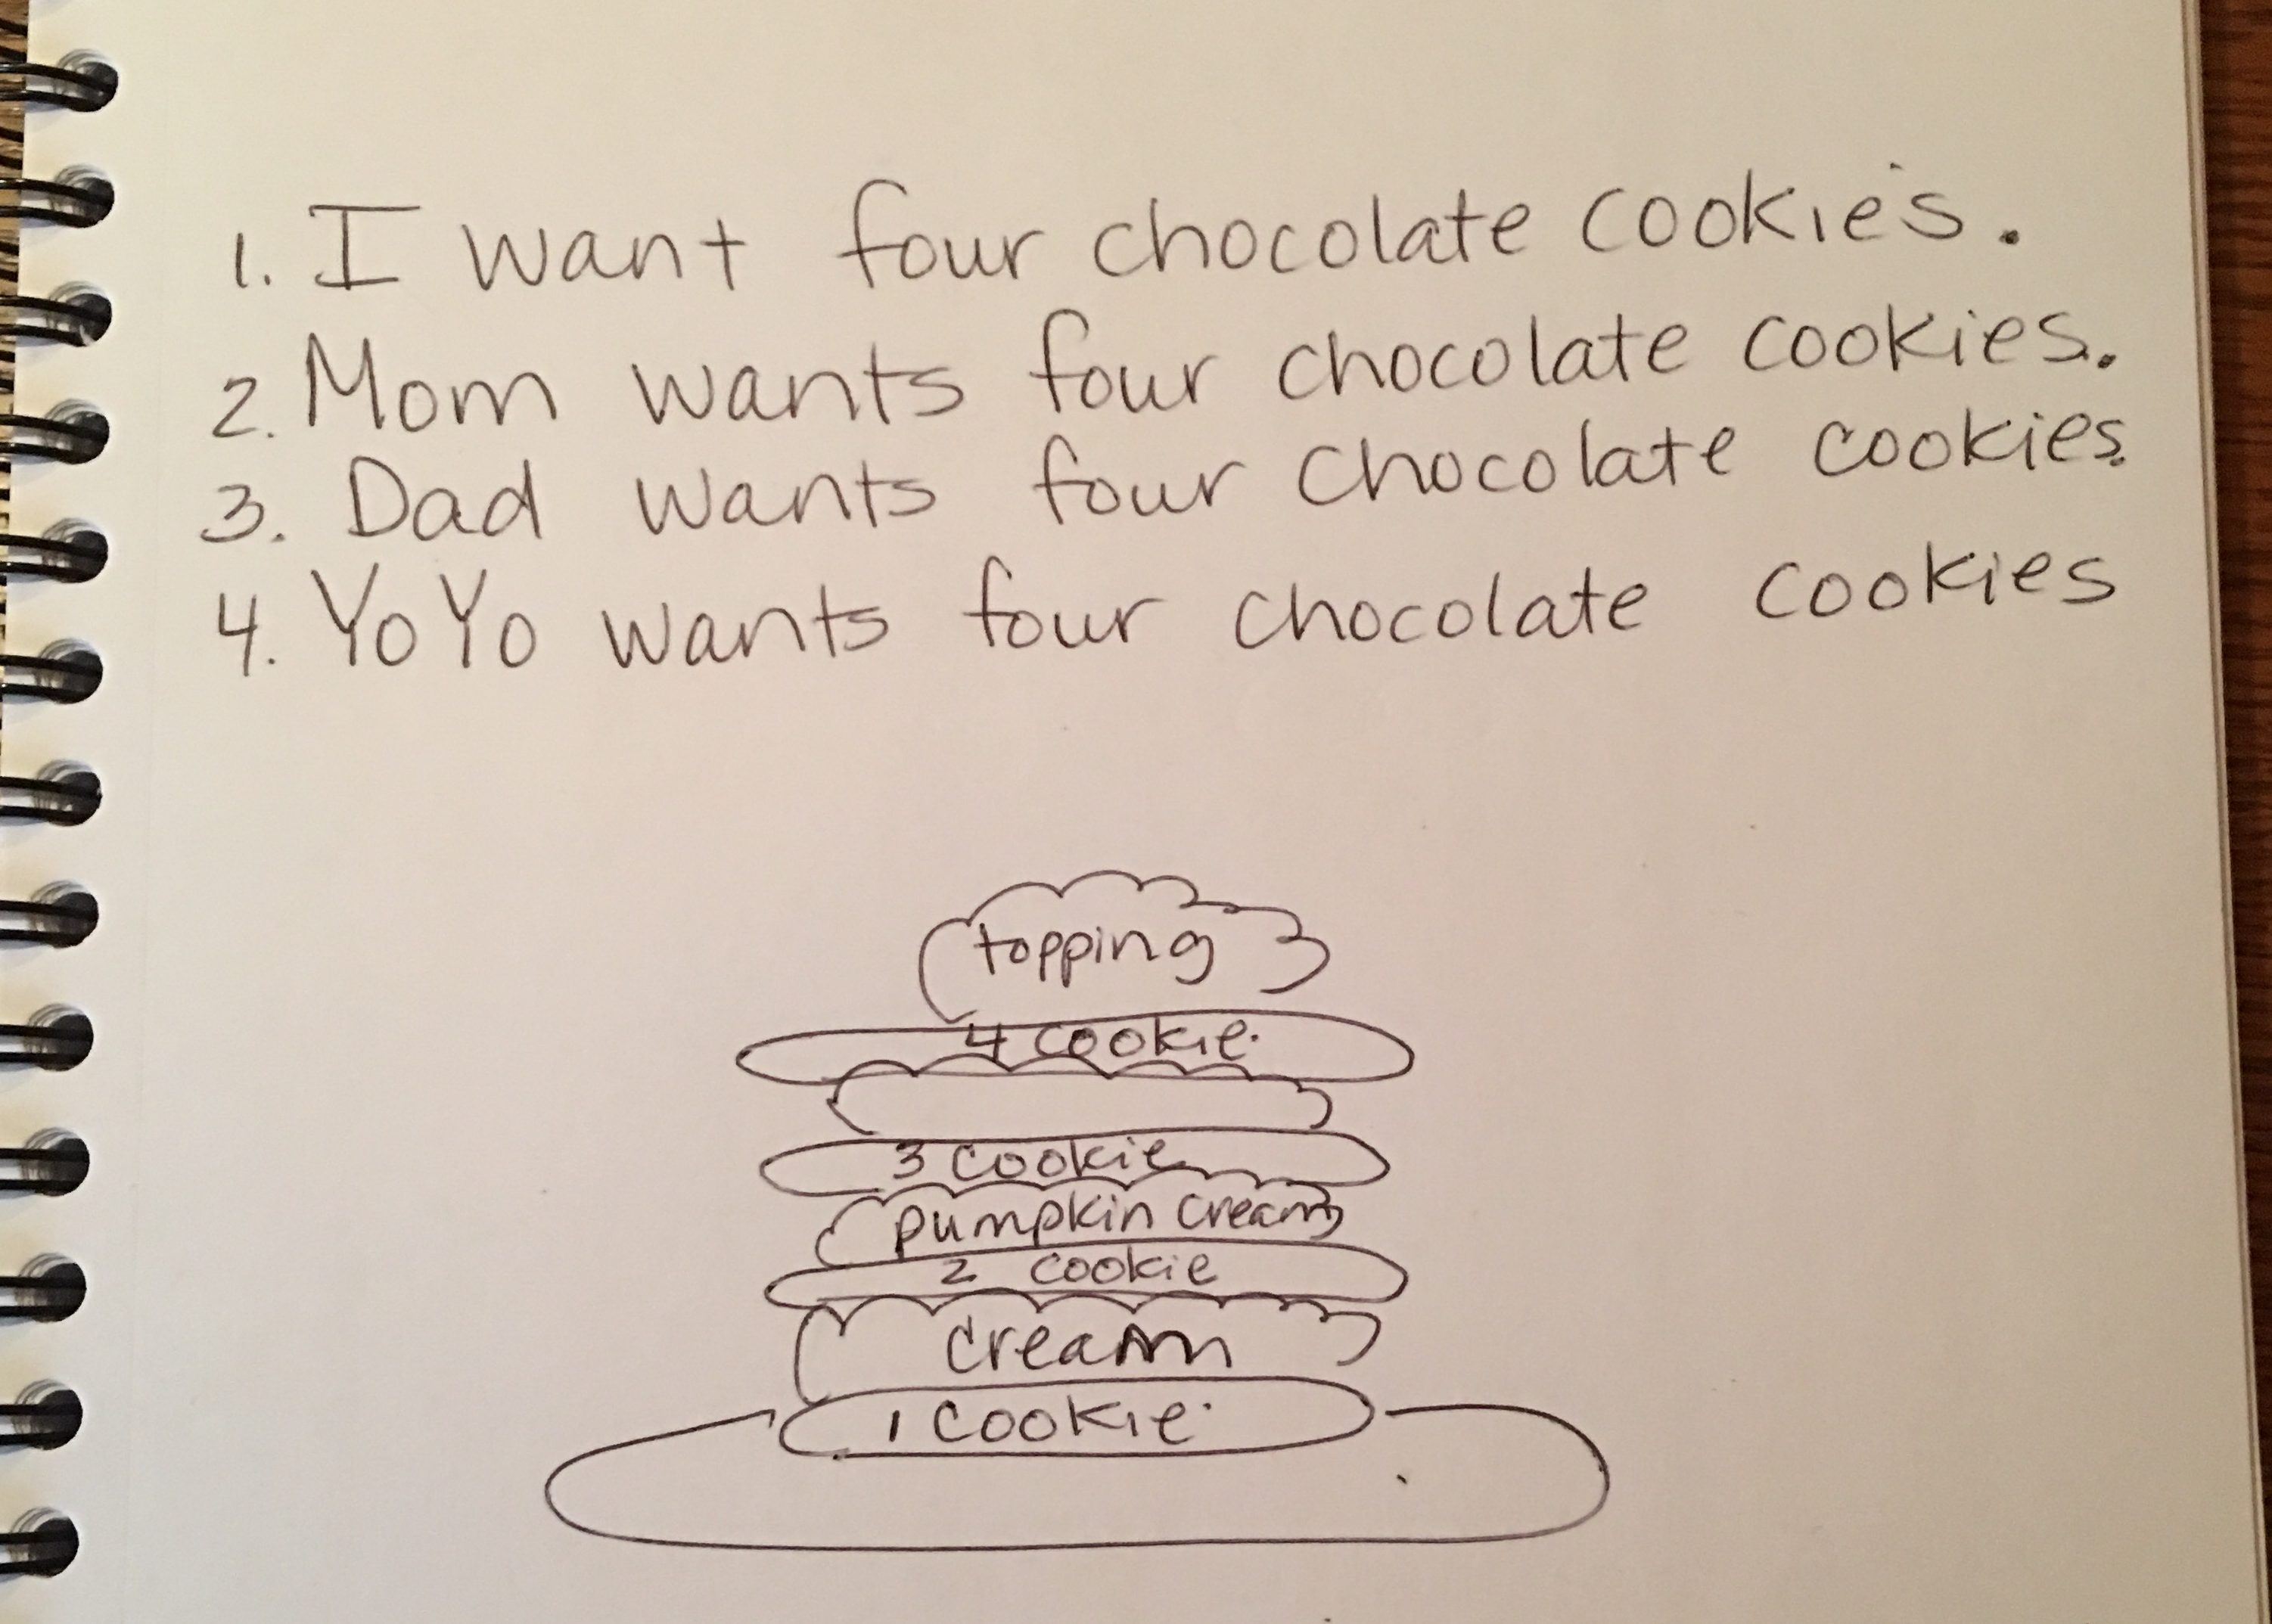 1. I want four chocolate cookies.
2. Mom wants four chocolate cookies.
3. Dad wants four chocolate cookies.
4. YoYo wants four chocolate cookies
topping
4 cookie
3 cookie
pumpkin cream
2 cookie
cream
1 cookie